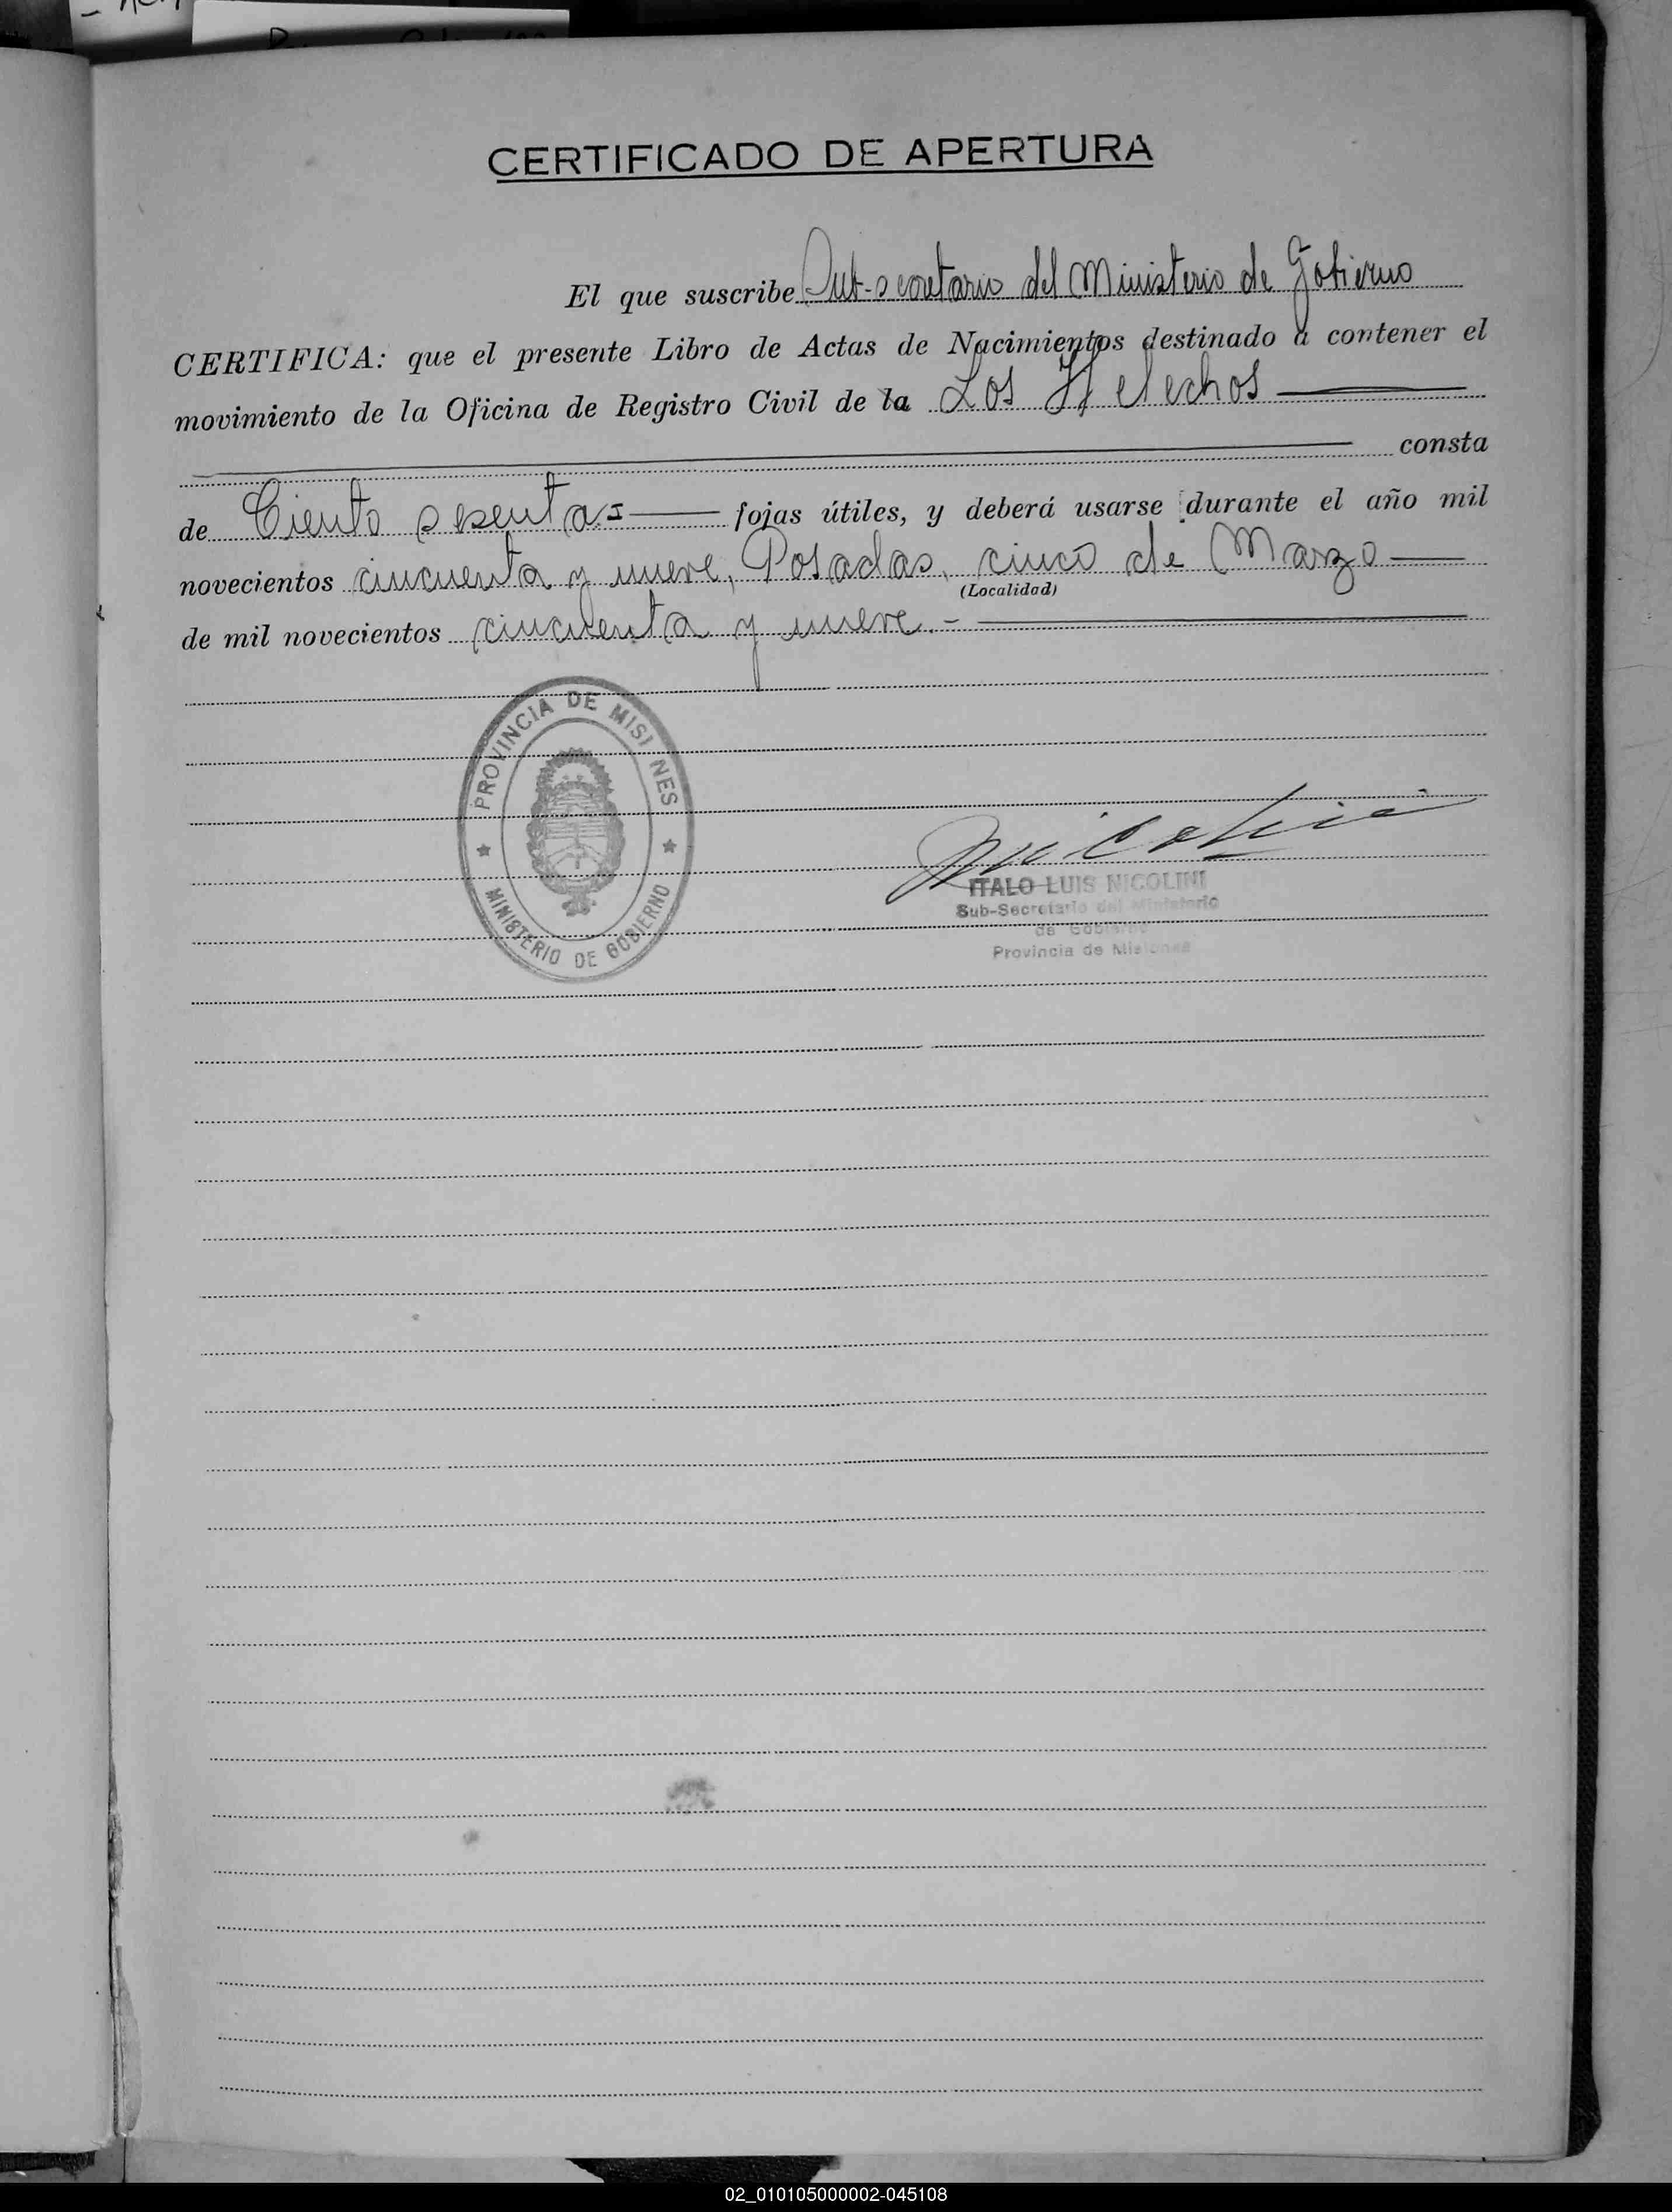 CERTIFICADO DE APERTURA
El que suscribe Sub-secretario del Ministerio de Gobierno
CERTIFICA: que el presente Libro de Actas de Nacimientos destinado a contener el
movimiento de la Oficina de Registro Civil de la Los Helechos
consta
de Ciento sesenta=— fojas útiles, y deberá usarse durante el año mil
novecientos cincuenta y nueve, Posadas, cinco de Marzo—
(Localidad)
de mil novecientos cincuenta y nueve.-
PROVINCIA DE MISI NES
MINISTERIO DE GOBIERNO
Nicolini
ITALO LUIS NICOLINI
Sub-Secretario del Ministerio
de Gobierno
Provincia de Misiones
02_010105000002-045108